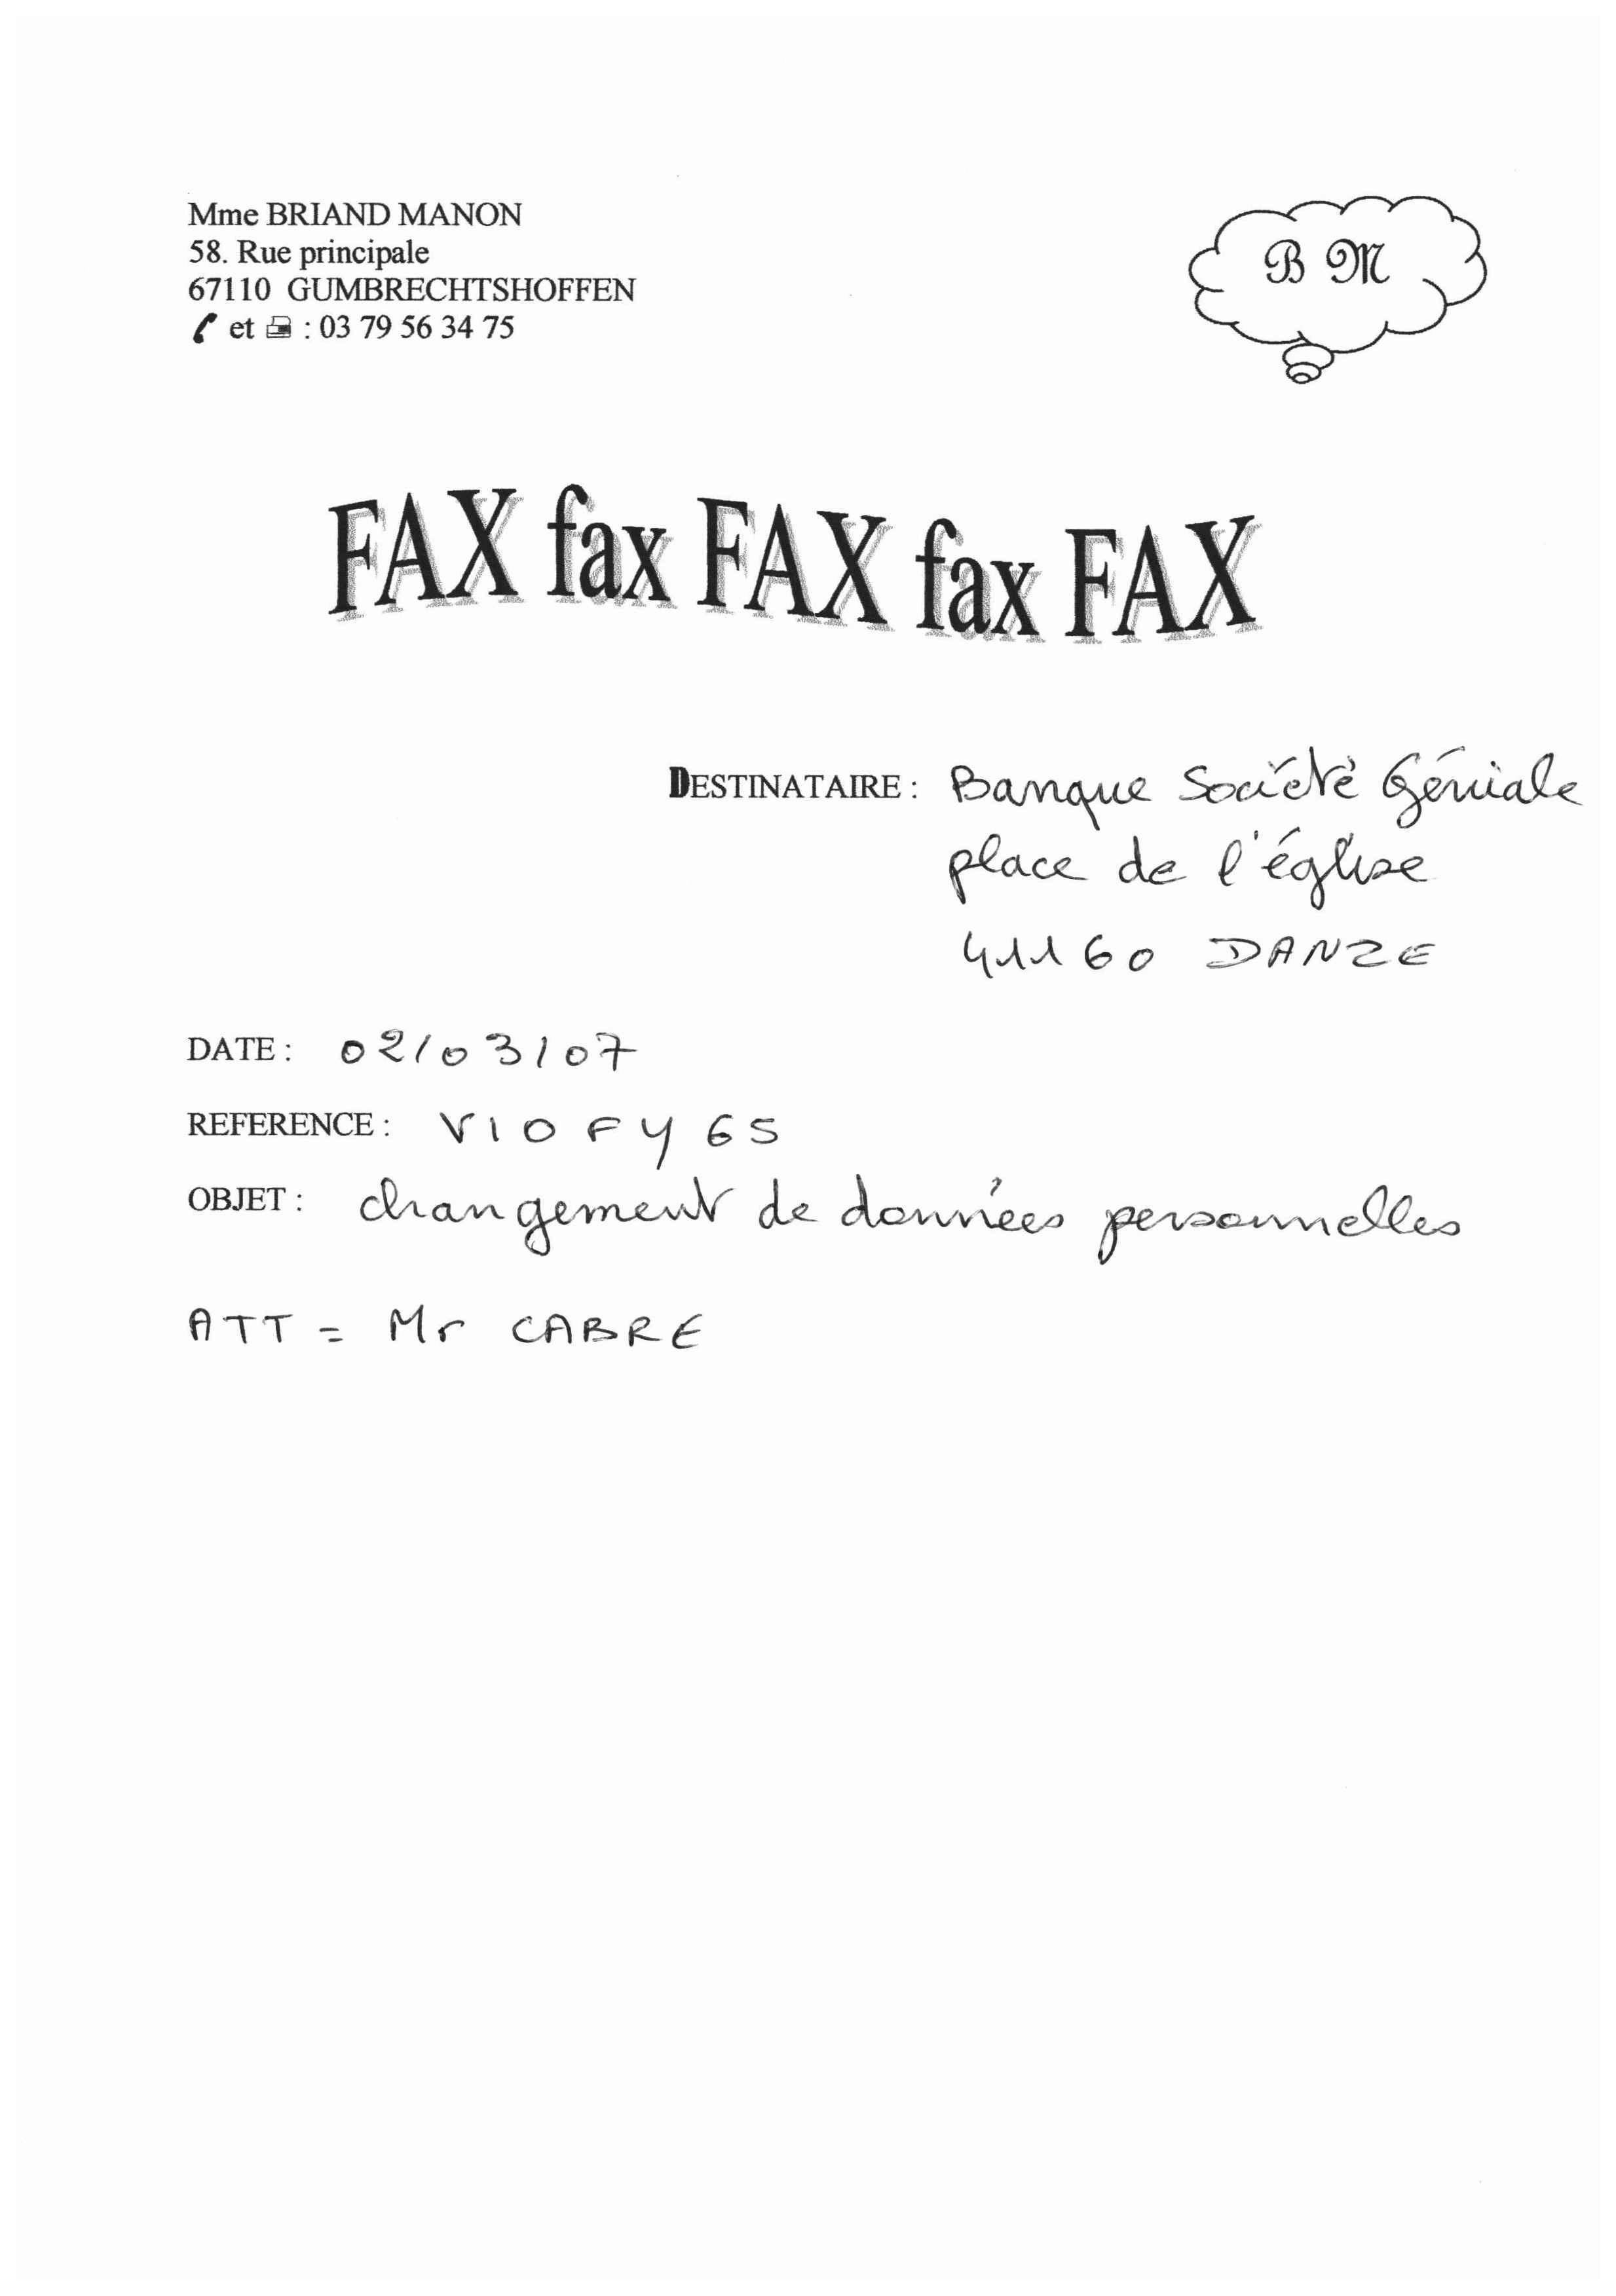 Mme BRIAND MANON
58. Rue principale
67110 GUMBRECHTSHOFFEN
et : 03 79 56 34 75
B M
FAX fax FAX fax FAX
DESTINATAIRE : Banque Société Géniale
place de l'église
41160 DANZE
DATE : 02/03/07
REFERENCE : VIOFY65
OBJET : changement de données personnelles
ATT = Mr CABRE